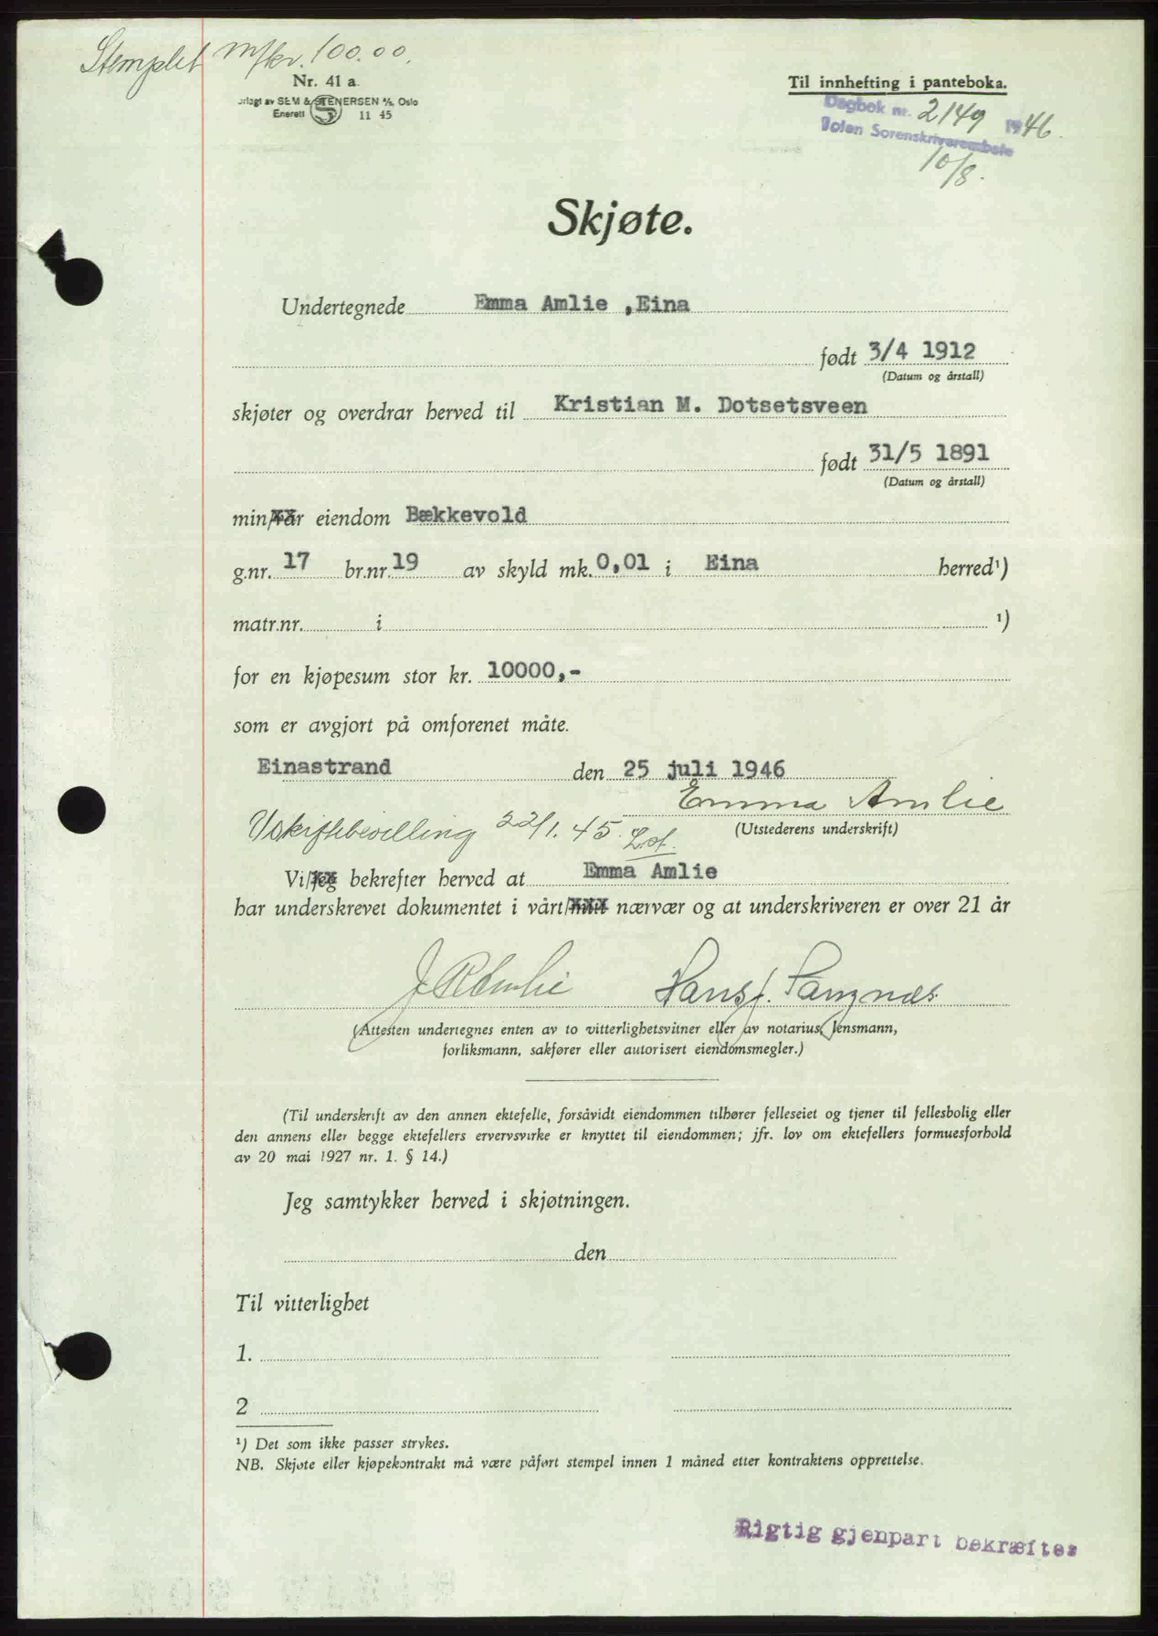 Stemplet m/kr. 100.00.
Nr. 41 a.
orlagt av SEM & STENERSEN A/S, Oslo
Enerett S 11 45
Til innhefting i panteboka.
Dagbok nr. 2149 1946.
Toten Sorenskriverembete
10/8.
Skjøte.
Undertegnede Emma Amlie ,Eina
født 3/4 1912
(Datum og årstall)
skjøter og overdrar herved til Kristian M. Dotsetsveen
født 31/5 1891
(Datum og årstall)
min/vår eiendom Bækkevold
g.nr. 17 br.nr. 19 av skyld mk. 0,01 i Eina herred¹)
matr.nr. i ¹)
for en kjøpesum stor kr. 10000,-
som er avgjort på omforenet måte.
Einastrand den 25 juli 1946
Emma Amlie
Uskiftebevilling 22/1.45.
(Utstederens underskrift)
Vi/jeg bekrefter herved at Emma Amlie
har underskrevet dokumentet i vårt/mitt nærvær og at underskriveren er over 21 år
Hans J.
(Attesten undertegnes enten av to vitterlighetsvitner eller av notarius, lensmann,
forliksmann, sakfører eller autorisert eiendomsmegler.)
(Til underskrift av den annen ektefelle, forsåvidt eiendommen tilhører felleseiet og tjener til fellesbolig eller
den annens eller begge ektefellers ervervsvirke er knyttet til eiendommen; jfr. lov om ektefellers formuesforhold
av 20 mai 1927 nr. 1. § 14.)
Jeg samtykker herved i skjøtningen.
den
Til vitterlighet
1.
2
¹) Det som ikke passer strykes.
NB. Skjøte eller kjøpekontrakt må være påført stempel innen 1 måned etter kontraktens opprettelse.
Rigtig gjenpart bekræftes